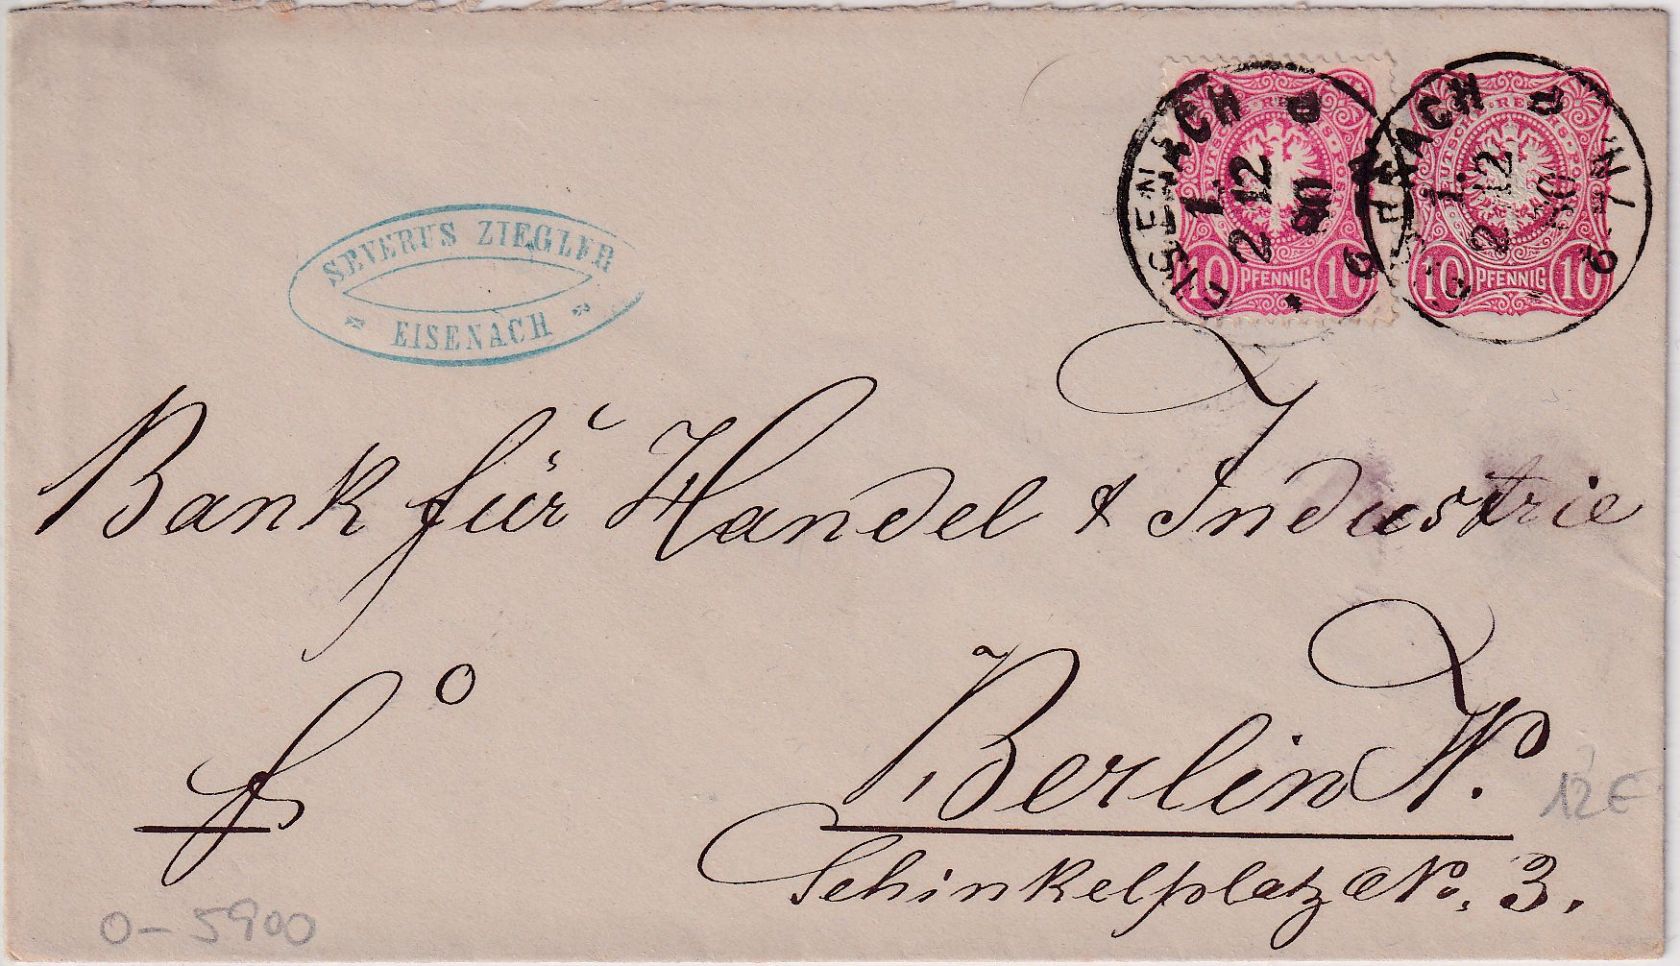 SEVERUS ZIEGLER
* EISENACH *
EISENACH
1.
2 12
90
6-7N
DEUTSCHE REICHS-POST
10 PFENNIG 10
EISENACH
1.
2 12
90
6-7N
DEUTSCHE REICHS-POST
10 PFENNIG 10
Bank für Handel & Industrie
Berlin W.
Schinkelplatz No. 3.
12€
0-5900